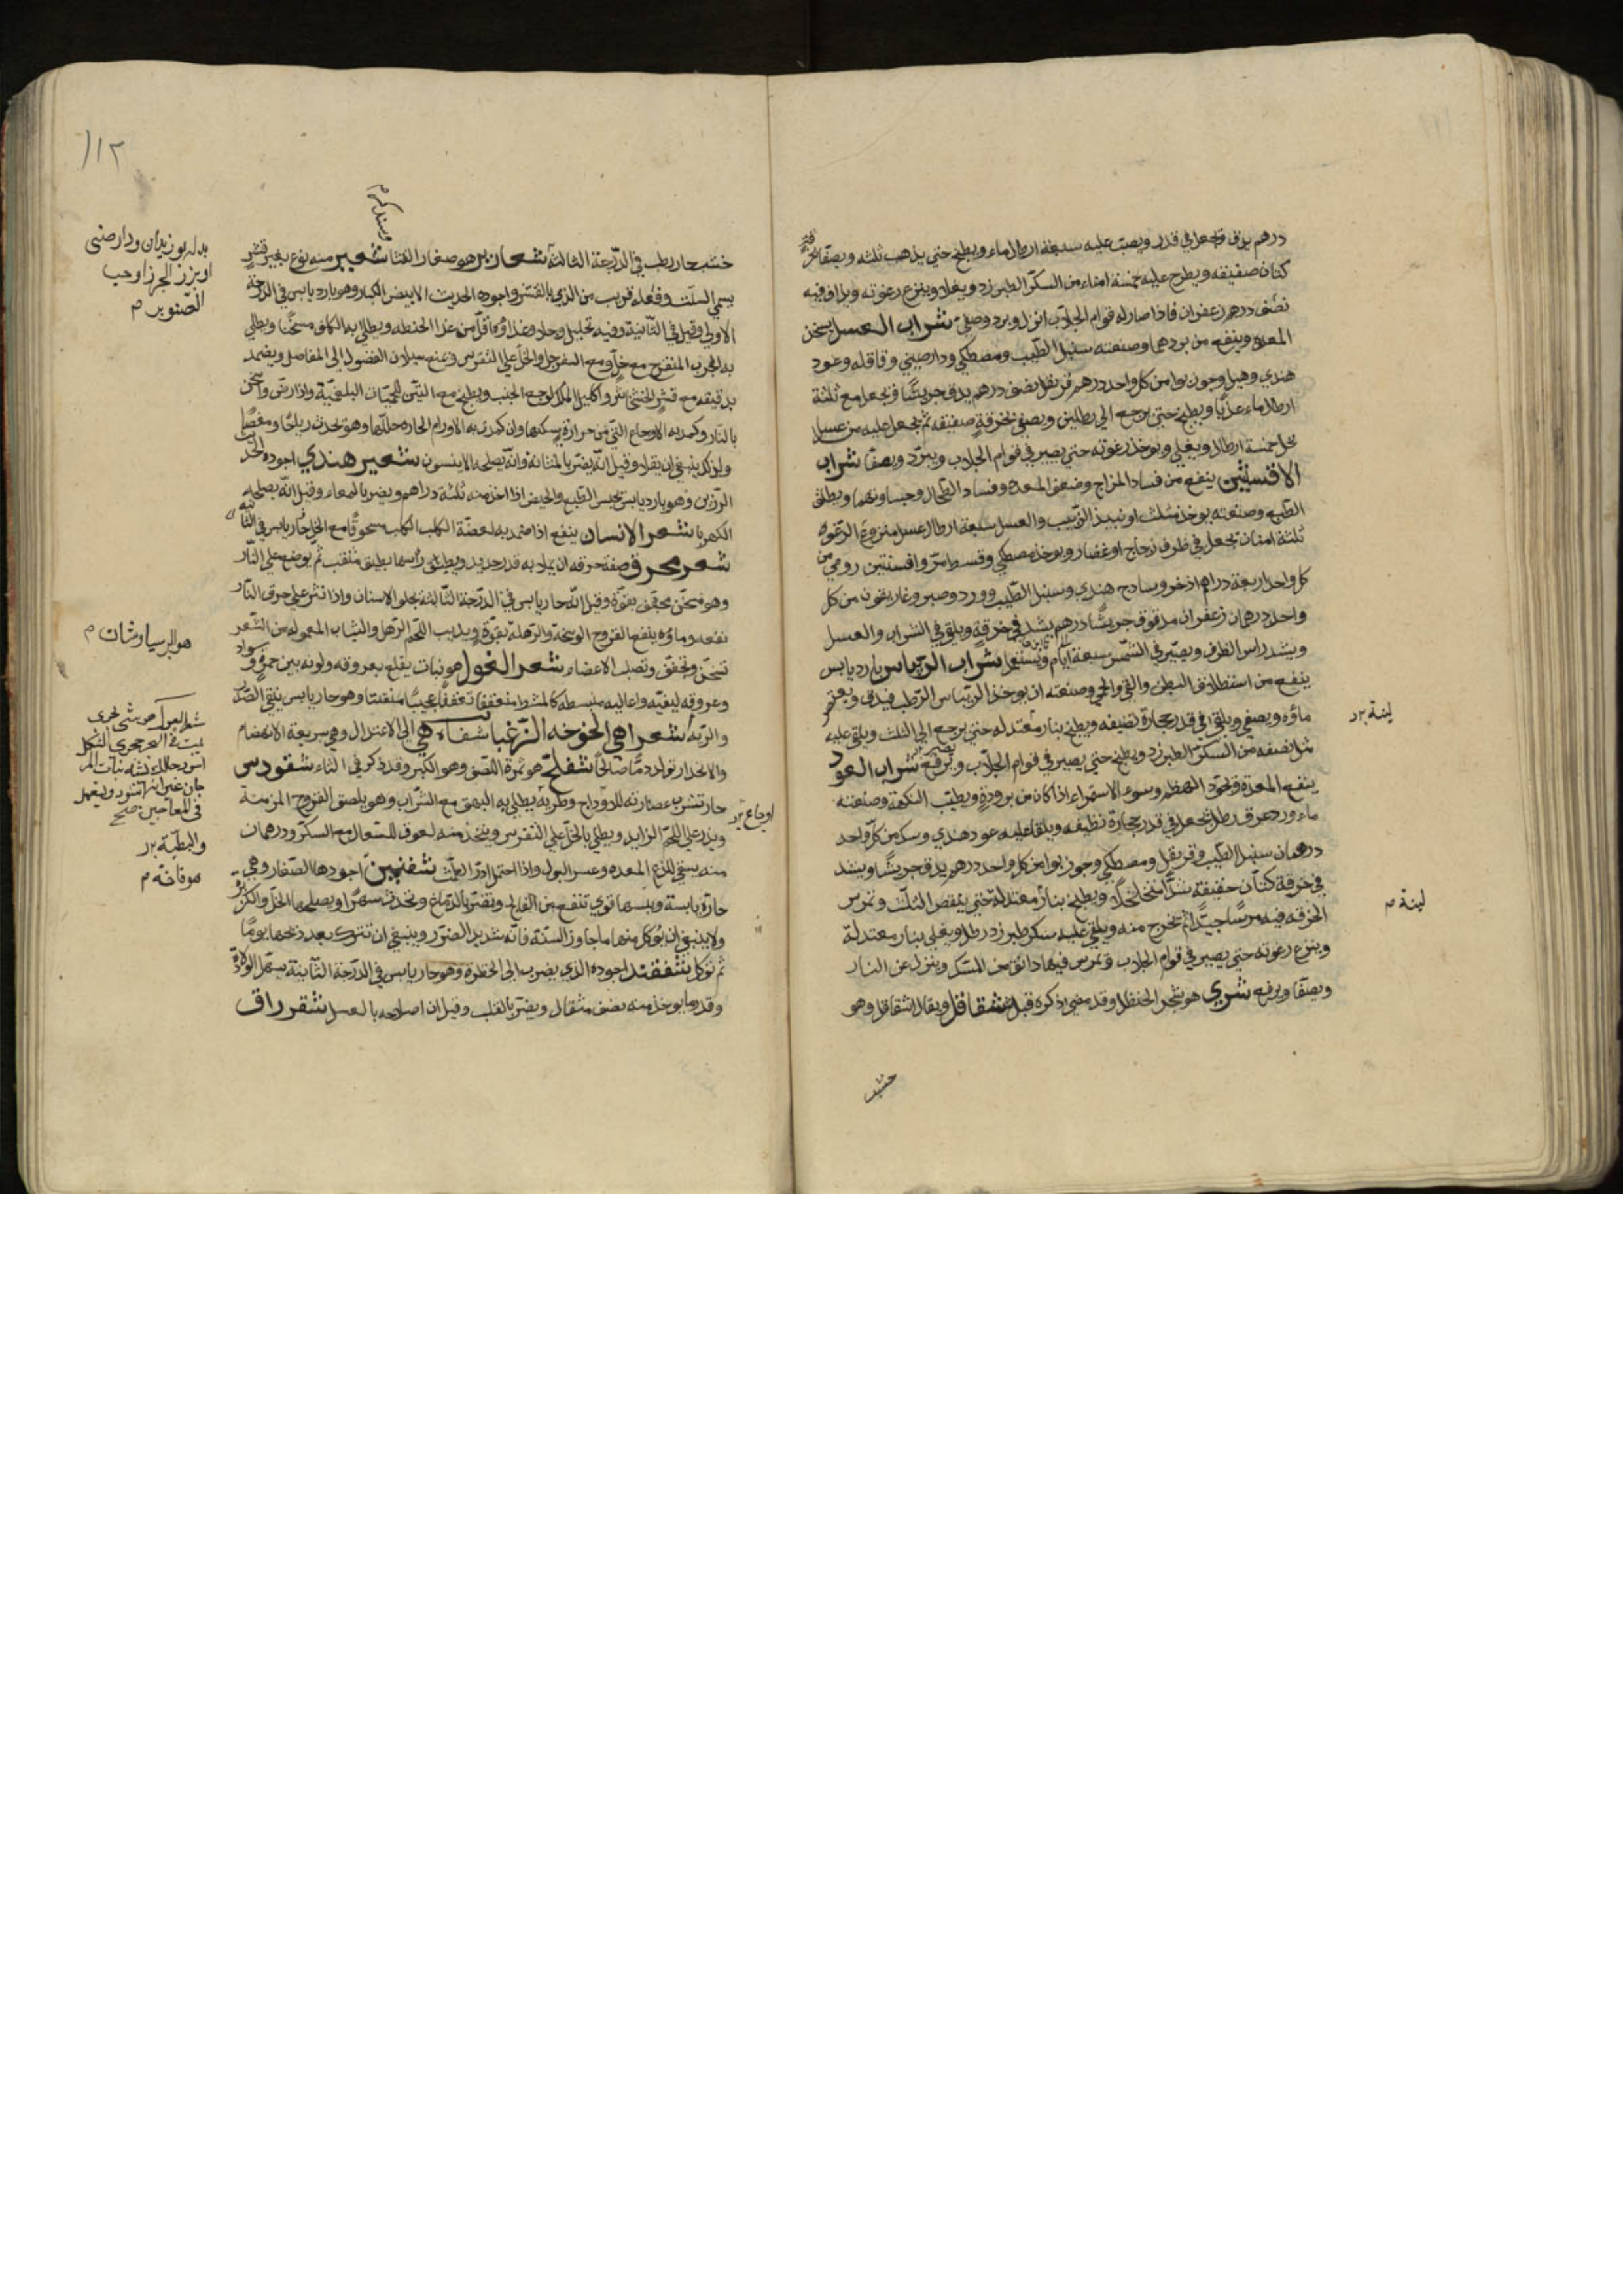 درهم يدق ويجعل في قدر ويصب عليه سبعة ارطال ماء ويطبخ حتى يذهب ثلثه ويصفا
كتان صفيقه ويطرح عليه خمسة امناء من السكر الطبرزد ويغلا وينزع رغوته ويداف فيه
نصف درهم زعفران فاذا صار له قوام الجلاب انزل وبرد وصلي شراب العسل يسخن
المعدة وينفع من بردها وصنعته سنبل الطيب ومصطكي ودارصيني وقاقله وعود
هندي وهيل وجوزبوا من كل واحد درهم قرنفل نصف درهم يدق جريشا ويجعل مع ثلثة
ارطال ماء عذبا ويطبخ حتى يرجع الى رطلين ويصفى بخرقة صفيقه ثم يجعل عليه من عسل
نحل خمسة ارطال ويغلي ويوخذ رغوته حتى يصير في قوام الجلاب ويبرد ويصفا شراب
الافسنتين ينفع من فساد المزاج وضعف المعدة وفساد الطحال وجساوتهما ويطلق
الطبع وصنعته يوخذ مثلث او نبيذ الزبيب والعسل سبعة ارطال عسل منزوع الرغوه
ثلثة امنان تجعل في ظرف زجاج او غضار ويوخذ مصطكي وقسط مر وافسنتين رومي من
كل واحد اربعة دراهم اذخر وسادج هندي وسنبل الطيب وورد وصبر وغاريقون من كل
واحد درهمان زعفران مدقوق جريشا درهم يشد في خرقة ويلقى في الشراب والعسل
ويشد راس الظرف ويصير في الشمس سبعة ايام ويستعمل شراب الريباس بارد يابس
ينفع من استطلاق البطن والقي والحمى وصنعته ان يوخذ الريباس الرطب فيدق ويعتصر
ماؤه ويصفى ويلقى في قدر حجارة نظيفه ويطبخ بنار معتدله حتى يرجع الى الثلث ويلقى عليه
مثل نصفه من السكر الطبرزد ويطبخ حتى يصير في قوام الجلاب ويرفع شراب العود
ينفع المعدة وتجود الهضم وسوء الاستمراء اذا كان من برودة ويطيب النكهة وصنعته
ماء ورد عرق رطل تجعل في قدر حجارة نظيفه ويلقا عليه عود هندي وسك من كل واحد
درهمان سنبل الطيب وقرنفل ومصطكي وجوزبوا من كل واحد درهم يدق جريشا ويشد
في خرقة كتان خفيفة شدا متخلخلا ويطبخ بنار معتدلة حتى ينقص الثلث وتمرس
الخرقه فيه مرسا جيدا ثم تخرج منه ويلقى عليه سكر طبرزد رطل ويغلى بنار معتدلة
وينزع رغوته حتى يصير في قوام الجلاب وتمرس فيها دانق من المسك وينزل عن النار
ويصفا ويرفع شري هو شجر الحنظل وقد مضى ذكره قبل شقاقل ويقال اشقاقل وهو
لينة م
١١٢
خشب حار رطب في الدرجة الثالثة شعارير هو صغار القثا شعير منه نوع بغير قشر
يسمى السلت وفعله قريب من الذي بالقشر واجوده الحديث الابيض الكبار وهو بارد يابس في الدرجة
الاولي وقيل في الثانية وفيه تحليل وجلا وغذاؤه اقل من غذا الحنطه ويطلا به الكلف مسخنا ويطلى
به الجرب المتقرح مع خل ومع السفرجل والخل على النقرس ويمنع سيلان الفضول الى المفاصل ويضمد
بدقيقه مع قشر الخشخاش واكليل الملك لوجع الجنب ويطبخ مع التين للحميات البلغمية واذا رض واسخن
بالنار وكمد به الاوجاع التي من حرارة سكنها وان كمد به الاورام الحارة حللها وهو يحدث رياحا ومغصا
ولذلك ينبغي ان يقلا وقيل انه يضر بالمثانة وانه يصلحه الانيسون شعير هندي اجوده الحديث
الرزين وهو بارد يابس يحبس الطبع والحيض اذا اخذ منه ثلثة دراهم ويضر بالمعاء وقيل انه يصلحه
الكهربا شعر الانسان ينفع اذا ضمد به لعضة الكلب الكلب مسحوقا مع الخل حار يابس في الثانيه
شعر محرق صفة حرقه ان يملا به قدر جديد ويطبق راسها بطبق مثقب ثم يوضع على النار
وهو مسخن مجفف بقوة وقيل انه حار يابس في الدرجة الثالثة يجلو الاسنان واذا نثر على حرق النار
نفعه وماؤه ينفع القروح الوسخة والرهلة بقوة ويذيب اللحم الرهل والثياب المعموله من الشعر
تسخن وتجفف وتصلب الاعضاء شعر الغول هو نبات يقلع بعروقه ولونه بين حمرة وسواد
وعروقه ليفيه واعاليه منبسطه كالمشط منعقفا تعقفا عجيبا متفتتا وهو حار يابس ينقي الصدر
والرية شعرا هي الخوخه الزغبا شفاه هي الى الاعتدال وهي سريعة الانهضام
والانحدار تولد دما صالحا شفلح هو ثمرة اللصف وهو الكبر وقد ذكر في الثاء شقودس
حار تشرب عصارته للاوداج وطريه يطلى به البهق مع الشراب وهو يلصق القروح المزمنة
ويذر على اللحم الزايد ويطلى بالخل على النقرس ويتخذ منه لعوق للسعال مع السكر ودرهمان
منه يسقى للذع المعده وعسر البول واذا احتمل ادر الطمث شفنين اجودها الصغار وهي
حارة يابسة ويبسها قوي تنفع من الفالج وتضر بالدماغ وتحدث سهرا ويصلحها الخل والكزبرة
ولا ينبغي ان يوكل منها ما جاوز السنة فانه شديد الضرر وينبغي ان تترك بعد ذبحها يوما
ثم توكل شقفند اجوده الذي يضرب الى الخضرة وهو حار يابس في الدرجة الثانية يسهل الولادة
وقدر ما يوخذ منه نصف مثقال ويضر بالقلب وقيل ان اصلاحه بالعسل شقرراق
بدله بوزيدان ودارصيني
او بزر الجزر او حب
الصنوبر م
هو البرسياوشان م